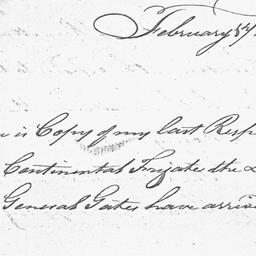 February 17
is Copy of my last Resp
Continental Frigate the
General Gates have arrive